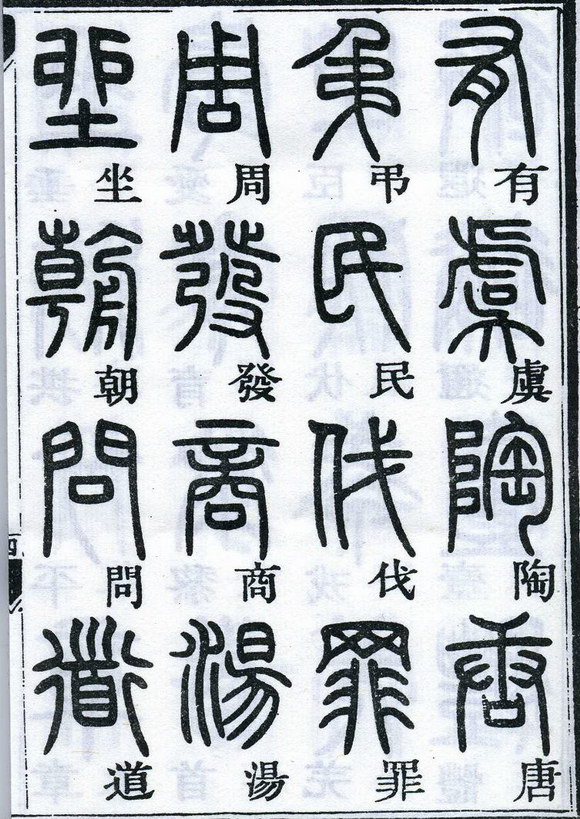 有有虞虞陶陶唐唐
弔弔民民伐伐罪罪
周周發發商商湯湯
坐坐朝朝問問道道
四